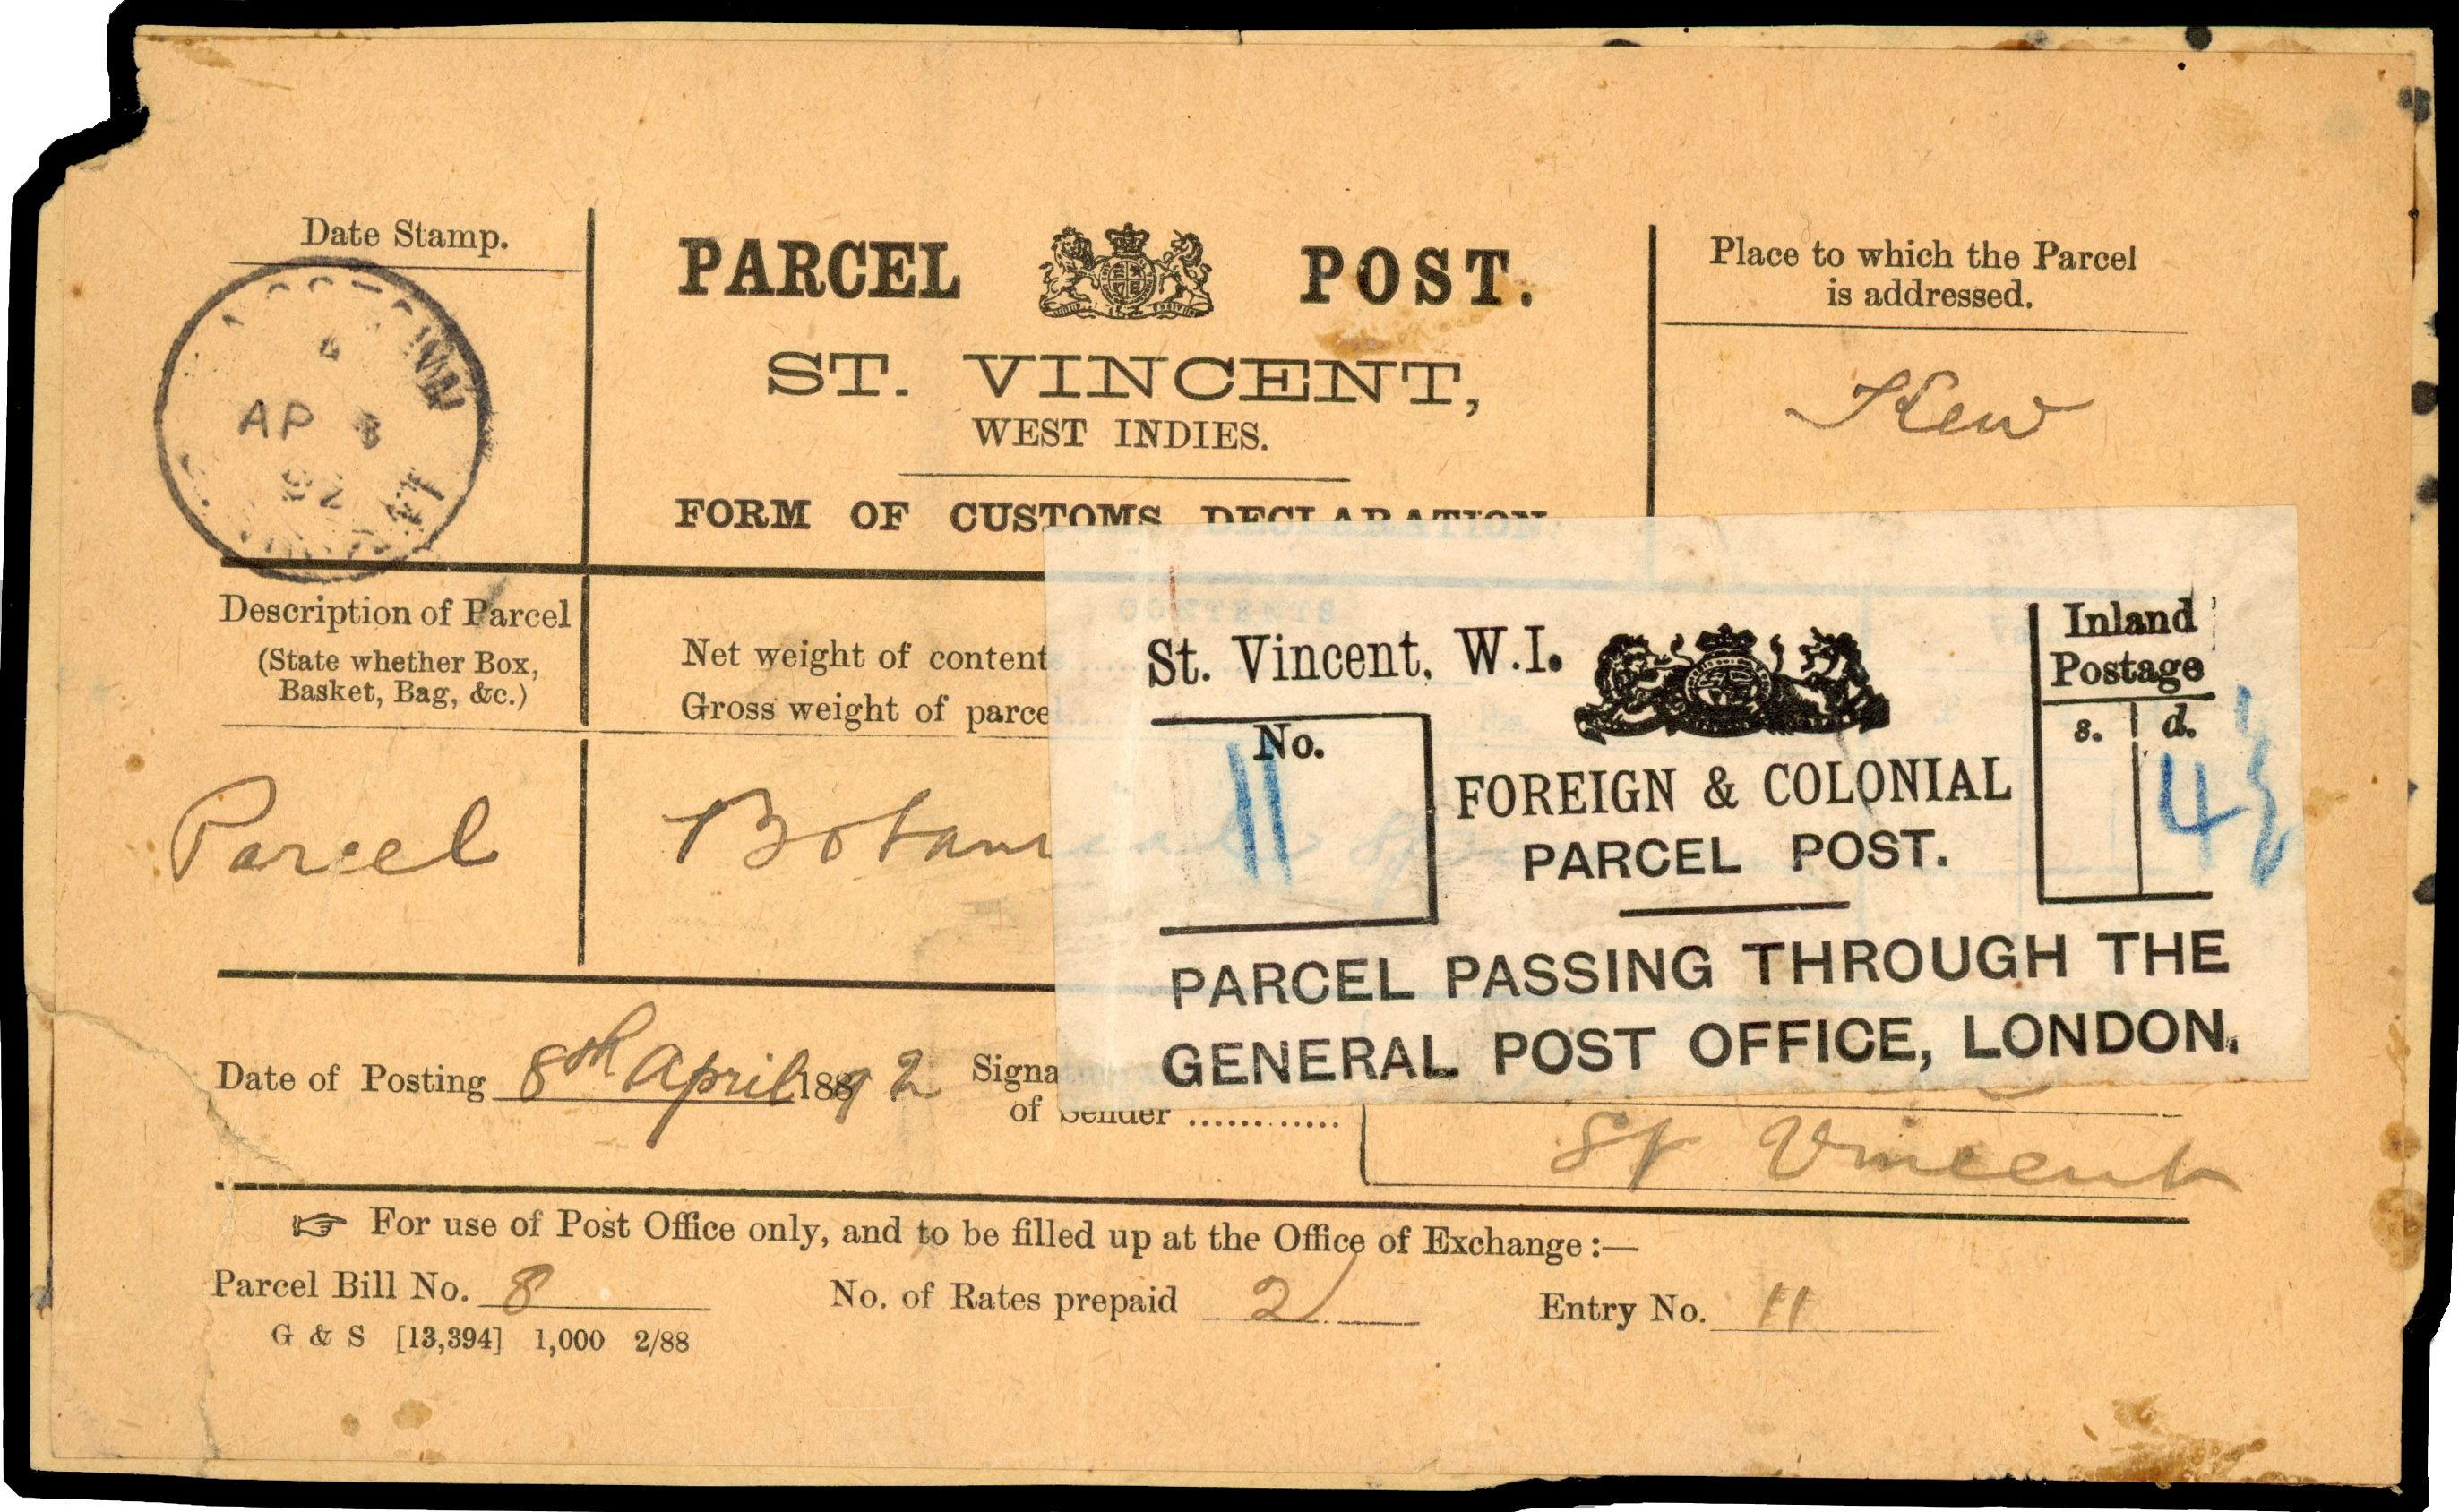 Date Stamp.
PARCEL POST.
Place to which the Parcel
is addressed.
AP 8
92
ST. VINCENT,
WEST INDIES.
Kew
FORM OF CUSTOMS DECLARATION
Description of Parcel
(State whether Box,
Basket, Bag, &c.)
Net weight of content
Gross weight of parce
St. Vincent, W.I.
Inland
Postage
s. d.
No.
11
4½
FOREIGN & COLONIAL
PARCEL POST.
Parcel
Botani
PARCEL PASSING THROUGH THE
GENERAL POST OFFICE, LONDON.
Date of Posting 8th April 1892
Signa
of Sender
St Vincent
For use of Post Office only, and to be filled up at the Office of Exchange :—
Parcel Bill No. 8 No. of Rates prepaid 2 Entry No. 11
G & S [13,394] 1,000 2/88